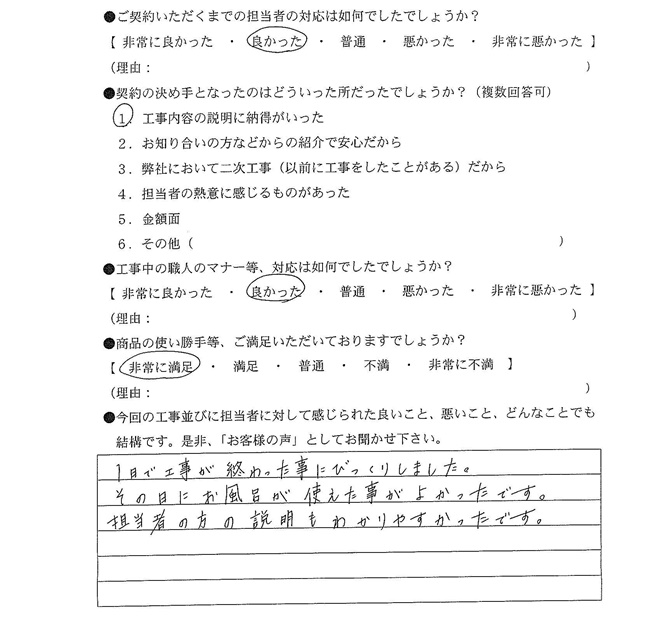 ●ご契約いただくまでの担当者の対応は如何でしたでしょうか？
【 非常に良かった ・ 良かった ・ 普通 ・ 悪かった ・ 非常に悪かった 】
（理由： ）
●契約の決め手となったのはどういった所だったでしょうか？（複数回答可）
1．工事内容の説明に納得がいった
2．お知り合いの方などからの紹介で安心だから
3．弊社において二次工事（以前に工事をしたことがある）だから
4．担当者の熱意に感じるものがあった
5．金額面
6．その他（ ）
●工事中の職人のマナー等、対応は如何でしたでしょうか？
【 非常に良かった ・ 良かった ・ 普通 ・ 悪かった ・ 非常に悪かった 】
（理由： ）
●商品の使い勝手等、ご満足いただいておりますでしょうか？
【 非常に満足 ・ 満足 ・ 普通 ・ 不満 ・ 非常に不満 】
（理由： ）
●今回の工事並びに担当者に対して感じられた良いこと、悪いこと、どんなことでも
結構です。是非、「お客様の声」としてお聞かせ下さい。
1日で工事が終わった事にびっくりしました。
その日にお風呂が使えた事がよかったです。
担当者の方の説明もわかりやすかったです。